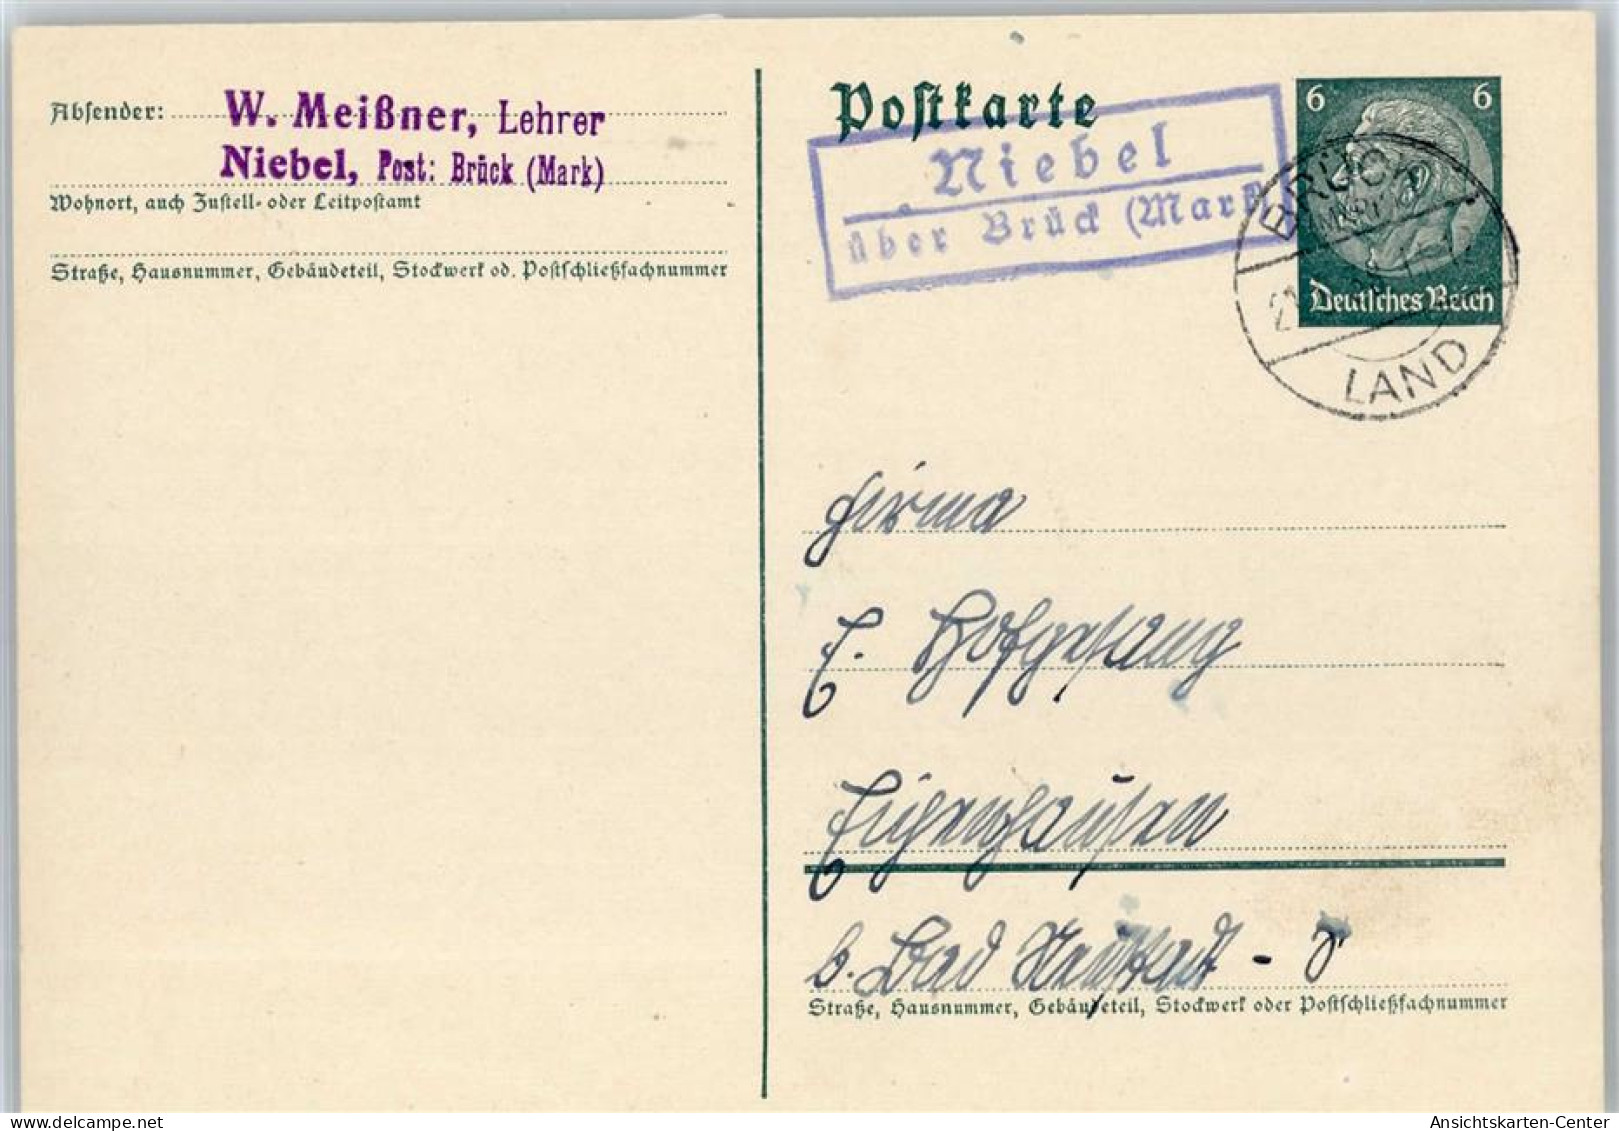 Absender: W. Meißner, Lehrer
Niebel, Post: Brück (Mark)
Wohnort, auch Zustell- oder Leitpostamt
Straße, Hausnummer, Gebäudeteil, Stockwerk od. Postschließfachnummer
Postkarte
Niebel
über Brück (Mark)
6 6
Deutsches Reich
BRÜCK
(MARK)
LAND
Firma
E. Hofgesang
Eigenhausen
b. Bad Neustadt -
Straße, Hausnummer, Gebäudeteil, Stockwerk oder Postschließfachnummer
Ansichtskarten-Center